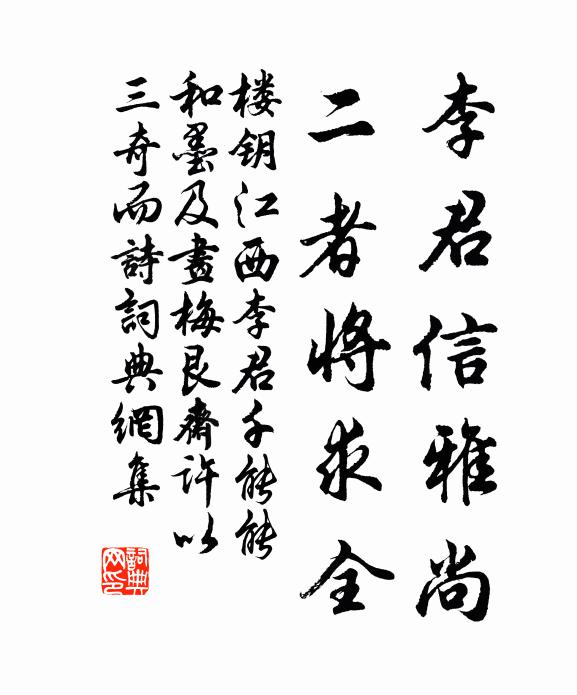 李君信雅尚
二者將求全
楼钥江西李君千能能
和墨及畫梅艮齋許以
三奇而詩詞典網集
詞典網印